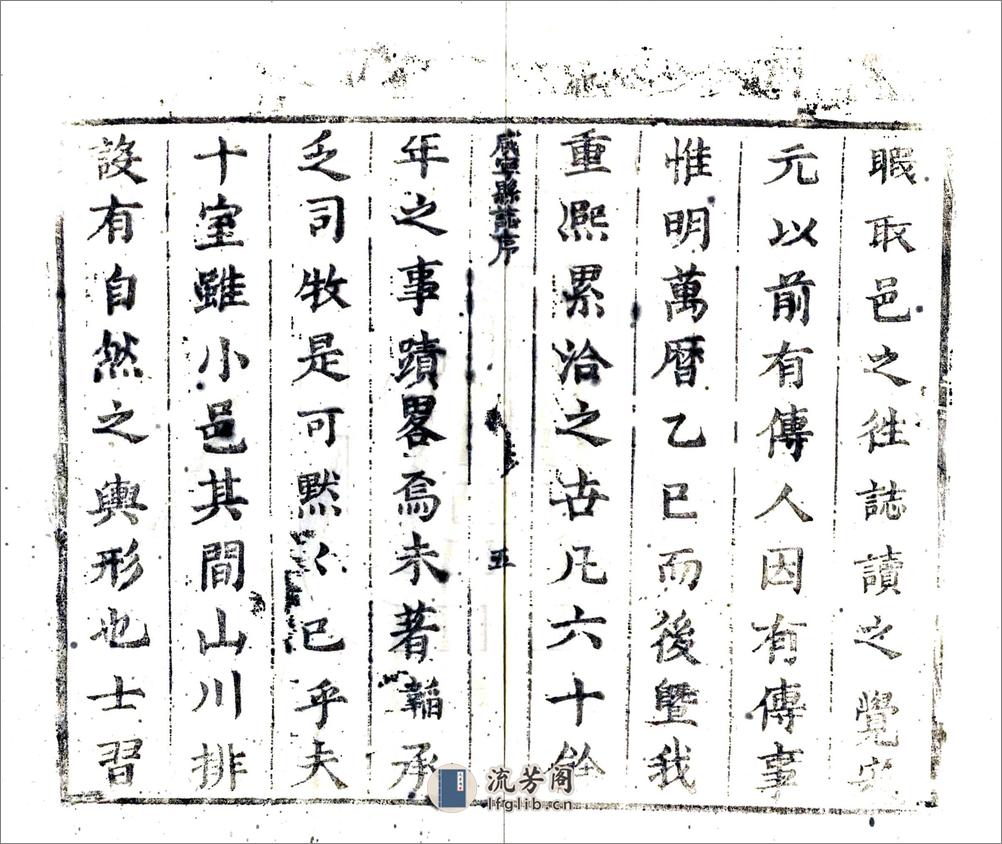 暇取邑之徃誌讀之覺宋
元以前有傳人因有傳事
惟明萬曆乙巳而後曁我
重熈累洽之古凡六十餘
咸寧縣誌序
五
年之事蹟畧焉未著韜承
乏司牧是可黙〻已乎夫
十室雖小邑其間山川排
設有自然之輿形也士習
流芳阁
lfglib.cn